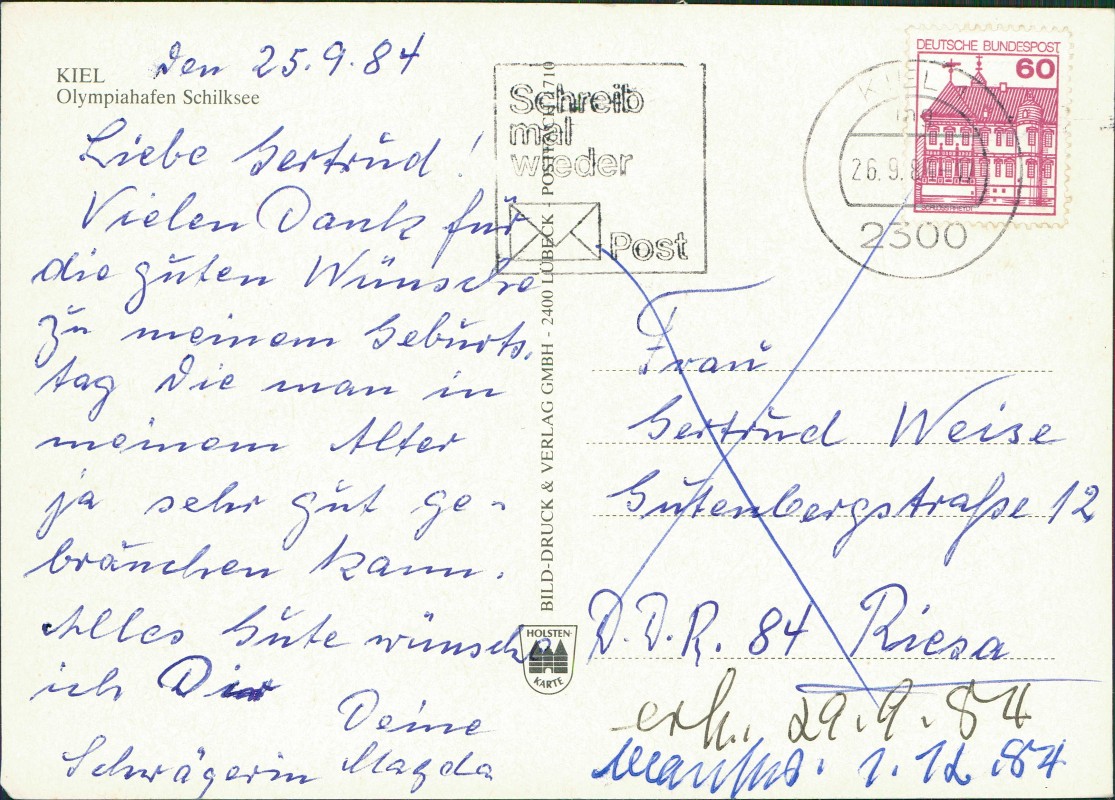 KIEL
Olympiahafen Schilksee
Den 25.9.84
Liebe Gertrud!
Vielen Dank für
die guten Wünsche
zu meinem Geburts.
tag die man in
meinem Alter
ja sehr gut ge-
bräuchen kann.
Alles Gute wünsche
ich Dir
Deine
Schwägerin Magda
BILD-DRUCK & VERLAG GMBH - 2400 LÜBECK - POSTFACH 1710
HOLSTEN-
KARTE
Schreib
mal
wieder
Post
KIEL 1
26.9.8
2300
DEUTSCHE BUNDESPOST
60
Frau
Gertrud Weise
Gutenbergstraße 12
D.D.R. 84 Riesa
erh. 29.9.84
1.12.84